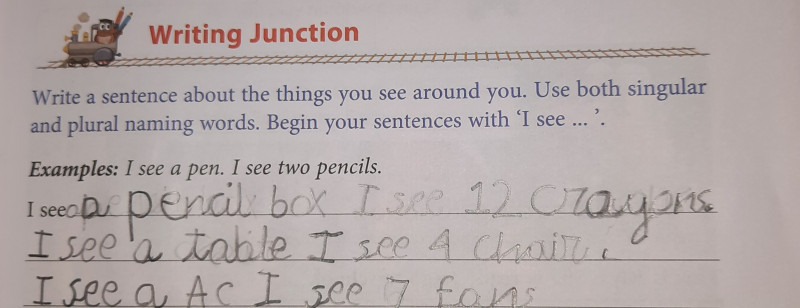 Writing Junction
Write a sentence about the things you see around you. Use both singular
and plural naming words. Begin your sentences with ‘I see ... ’.
Examples: I see a pen. I see two pencils.
I see a pencil box I see 12 Crayons
I see a table I see 4 chair.
I see a AC I see 7 fans